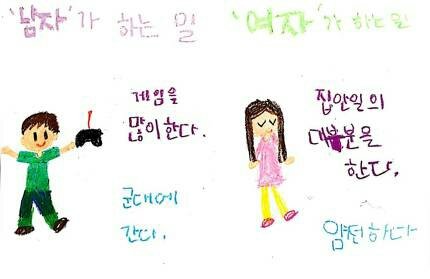 '남자'가 하는 일
게임을
많이한다.
군대에
간다.
'여자'가 하는 일
집안일의
대부분을
한다.
얌전하다